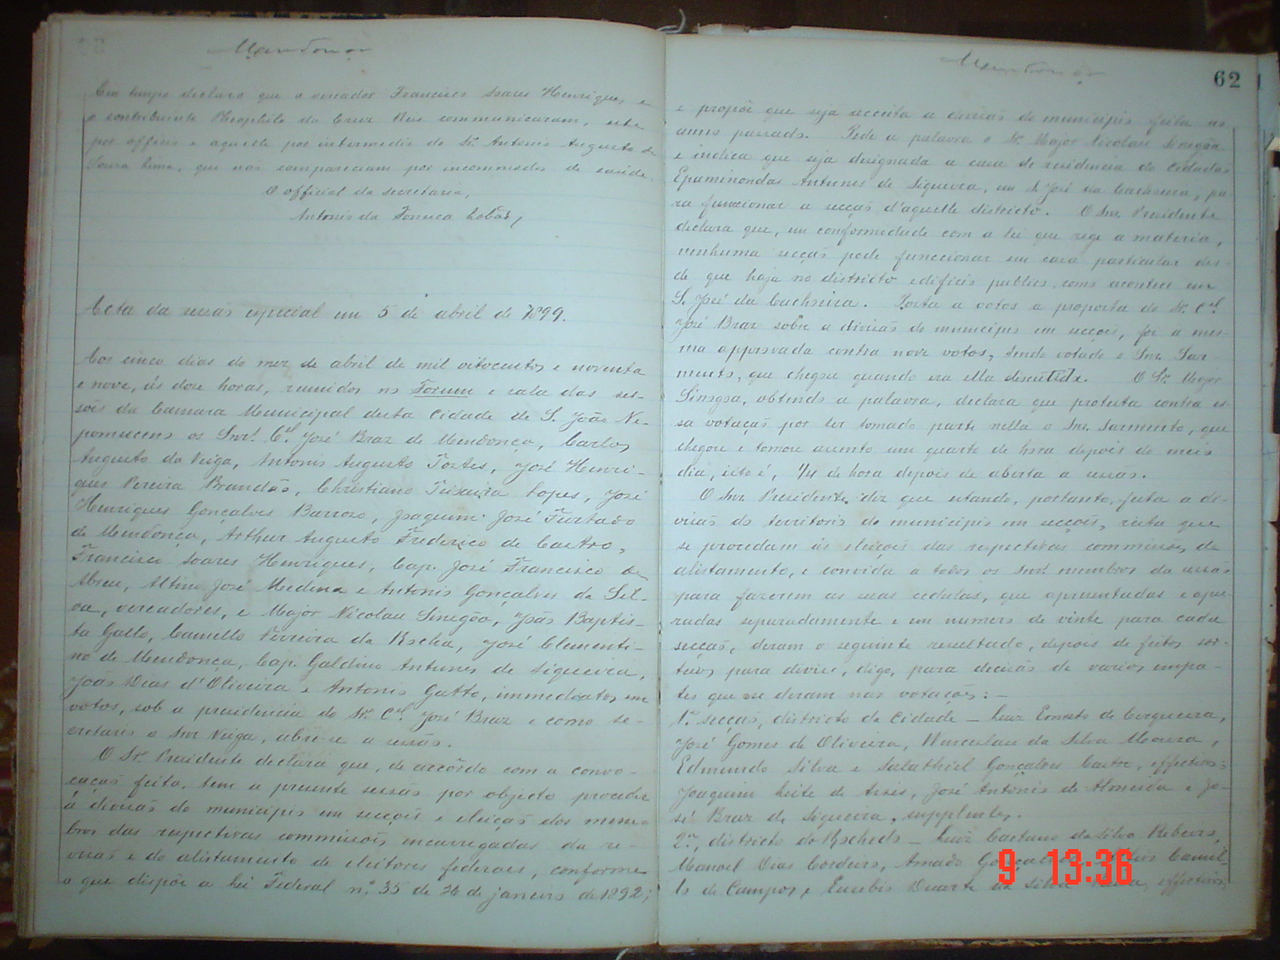 Mendonça
Em tempo declaro que o vereador Francisco Soares Henriques e
o contribuinte Theophilo da Cruz communicaram, este
por officio e aquelle por intermedio do Sr. Antonio Augusto de
Souza Lima, que não compareciam por incommodos de saúde.
O official da secretaria,
Antonio da Fonseca Lobão,
Acta da sessão especial em 5 de abril de 1899.
Aos cinco dias do mez de abril de mil oitocentos e noventa
e nove, ás doze horas, reunidos no Forum e sala das ses-
sões da Camara Municipal desta Cidade de S. João Ne-
pomuceno os Snrs. Cel. José Braz de Mendonça, Carlos
Augusto da Veiga, Antonio Augusto Fortes, José Henri-
ques Pereira Brandão, Christiano Teixeira Lopes, José
Henriques Gonçalves Barroso, Joaquim José Furtado
de Mendonça, Arthur Augusto Frederico de Castro,
Francisco Soares Henriques, Cap. José Francisco de
Abreu, Altino José Medina e Antonio Gonçalves da Sil-
va, vereadores, e Major Nicolau Sinegão, João Baptis-
ta Gallo, Camillo Ferreira da Rocha, José Clementi-
no de Mendonça, Cap. Galdino Antunes de Siqueira,
João Dias d'Oliveira e Antonio Gatto, immediatos em
votos, sob a presidencia do Sr. Cel. José Braz e como se-
cretario o Snr Veiga, abriu-se a sessão.
O Sr. Presidente declara que, de accôrdo com a convo-
cação feita, tem a presente sessão por objecto proceder
á divisão do municipio em secções e eleição dos mem-
bros das respectivas commissões encarregadas da re-
visão e do alistamento de eleitores federaes, conforme
o que dispõe a lei Federal n.º 35 de 26 de janeiro de 1892;
Mendonça
62
e propõe que seja acceita a divisão do municipio feita no
anno passado. Pede a palavra o Sr. Major Nicolau Sinegão
e indica que seja designada a casa de residencia do cidadão
Epaminondas Antunes de Siqueira, em S. José da Cachoeira, pa-
ra funccionar a secção d'aquelle districto. O Snr. Presidente
declara que, em conformidade com a lei que rege a materia,
nenhuma secção pode funccionar em casa particular des-
de que haja no districto edificio publico, como acontece em
S. José da Cachoeira. Posta a votos a proposta do Sr. Cel.
José Braz sobre a divisão do municipio em secções, foi a mes-
ma approvada contra nove votos, tendo votado o Snr. Sar-
mento, que chegou quando era ella discutida. O Sr. Major
Sinegão, obtendo a palavra, declara que protesta contra es-
sa votação por ter tomado parte nella o Snr. Sarmento, que
chegou e tomou assento um quarto de hora depois do meio
dia, isto é, 1/4 de hora depois de aberta a sessão.
O Snr. Presidente diz que estando, portanto, feita a di-
visão do territorio do municipio em secções, resta que
se procedam ás eleições das respectivas commissões de
alistamento, e convida a todos os Snrs. membros da sessão
para fazerem as suas cedulas, que apresentadas e apu-
radas separadamente e em numero de vinte para cada
secção, deram o seguinte resultado, depois de feitos sor-
teios para divisi, digo, para decisão de varios empa-
tes que se deram nas votações: -
1ª. secção, districto da Cidade - Luiz Ernesto de Cerqueira,
José Gomes de Oliveira, Wenceslau da Silva Moura,
Edmundo Silva e Salathiel Gonçalves Castro, effectivos;
Joaquim Leite de Assis, José Antonio de Almeida e Jo-
sé Braz de Siqueira, supplentes.
2ª., districto do Rochedo - Luiz Caetano da Silva Ribeiro,
Manoel Dias Cordeiro, Amado Camil-
lo de Campos e Eusebio Duarte da Silva effectivos,
9 13:36